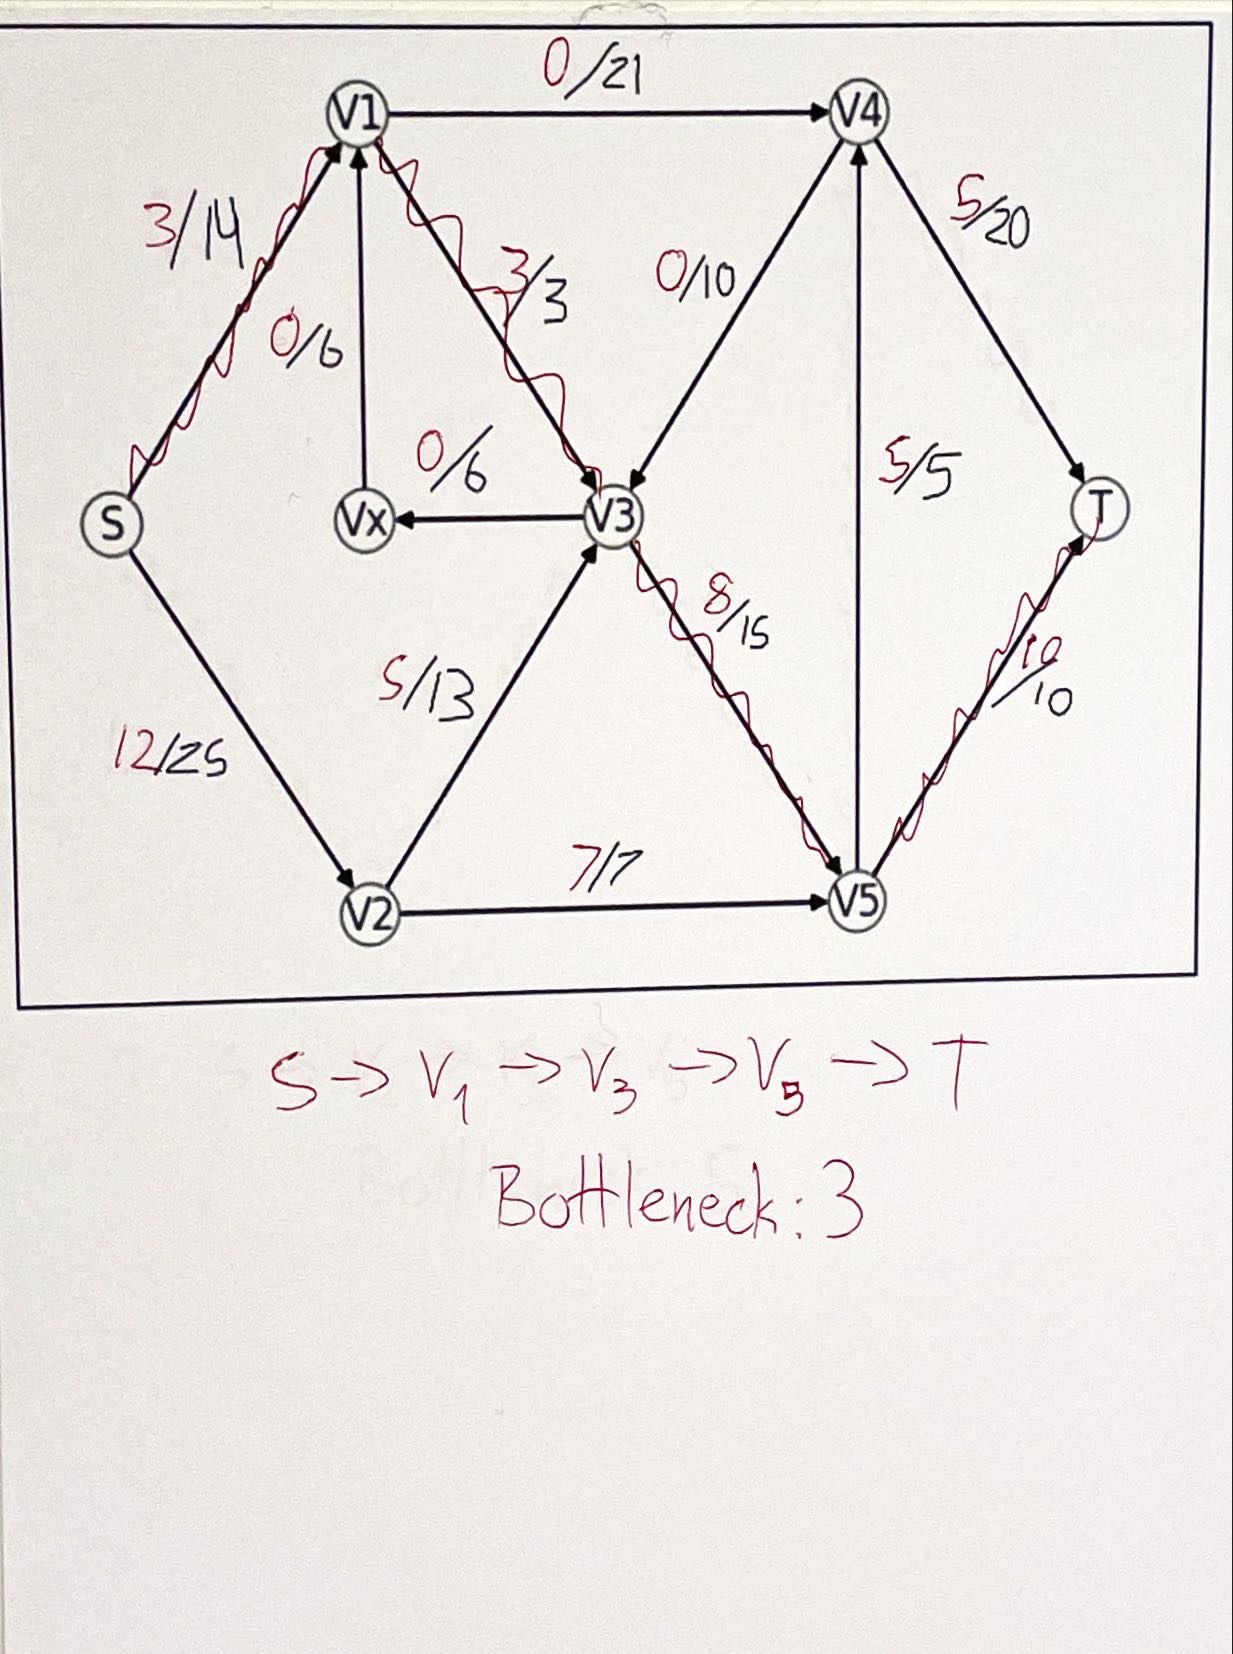 0/21
V1
V4
3/14
5/20
3/3
0/10
0/6
0/6
5/5
S
Vx
V3
T
8/15
5/13
10/10
12/25
7/7
V2
V5
S → V1 → V3 → V5 → T
Bottleneck: 3